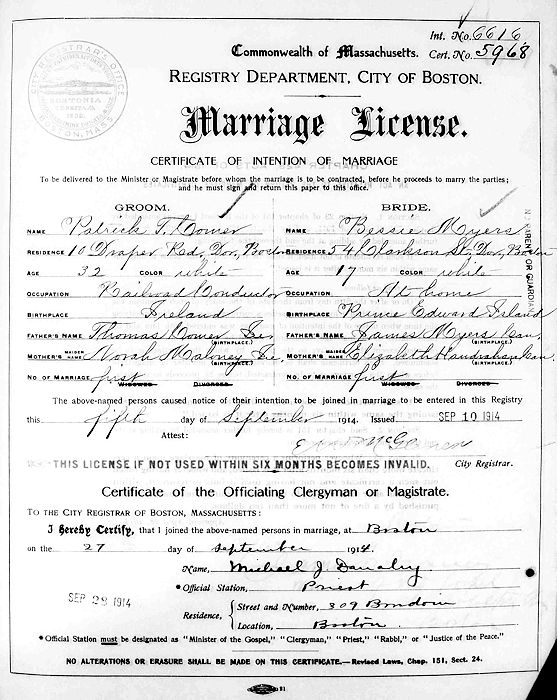 Int. No. 6616
Commonwealth of Massachusetts. Cert. No. 5968
REGISTRY DEPARTMENT, CITY OF BOSTON.
CITY REGISTRAR'S OFFICE
BOSTONIA
BOSTON, MASS.
Marriage License.
CERTIFICATE OF INTENTION OF MARRIAGE
To be delivered to the Minister or Magistrate before whom the marriage is to be contracted, before he proceeds to marry the parties;
and he must sign and return this paper to this office.
GROOM. BRIDE.
NAME Patrick T. Comer NAME Bessie Myers
RESIDENCE 10 Draper Rd, Dor, Boston RESIDENCE 54 Clarkson St, Dor, Boston
AGE 32 COLOR white AGE 17 COLOR white
OCCUPATION Railroad Conductor OCCUPATION At home
BIRTHPLACE Ireland BIRTHPLACE Prince Edward Island
FATHER'S NAME Thomas Comer Ire. (BIRTHPLACE.) FATHER'S NAME James Myers Can. (BIRTHPLACE.)
MOTHER'S MAIDEN NAME Norah Maloney Ire. (BIRTHPLACE.) MOTHER'S MAIDEN NAME Elizabeth Can. (BIRTHPLACE.)
NO. OF MARRIAGE first WIDOWED DIVORCED NO. OF MARRIAGE first WIDOWED DIVORCED
PARENT OR GUARDIAN
The above-named persons caused notice of their intention to be joined in marriage to be entered in this Registry
this fifth day of September 1914. Issued SEP 10 1914
Attest:
City Registrar.
THIS LICENSE IF NOT USED WITHIN SIX MONTHS BECOMES INVALID.
Certificate of the Officiating Clergyman or Magistrate.
TO THE CITY REGISTRAR OF BOSTON, MASSACHUSETTS:
I Hereby Certify, that I joined the above-named persons in marriage, at Boston
on the 27 day of September 1914.
Name, Michael J.
* Official Station, Priest
SEP 28 1914
Residence, { Street and Number, 309 Bowdoin
Location, Boston
* Official Station must be designated as "Minister of the Gospel," "Clergyman," "Priest," "Rabbi," or "Justice of the Peace."
NO ALTERATIONS OR ERASURE SHALL BE MADE ON THIS CERTIFICATE.—Revised Laws, Chap. 151, Sect. 24.